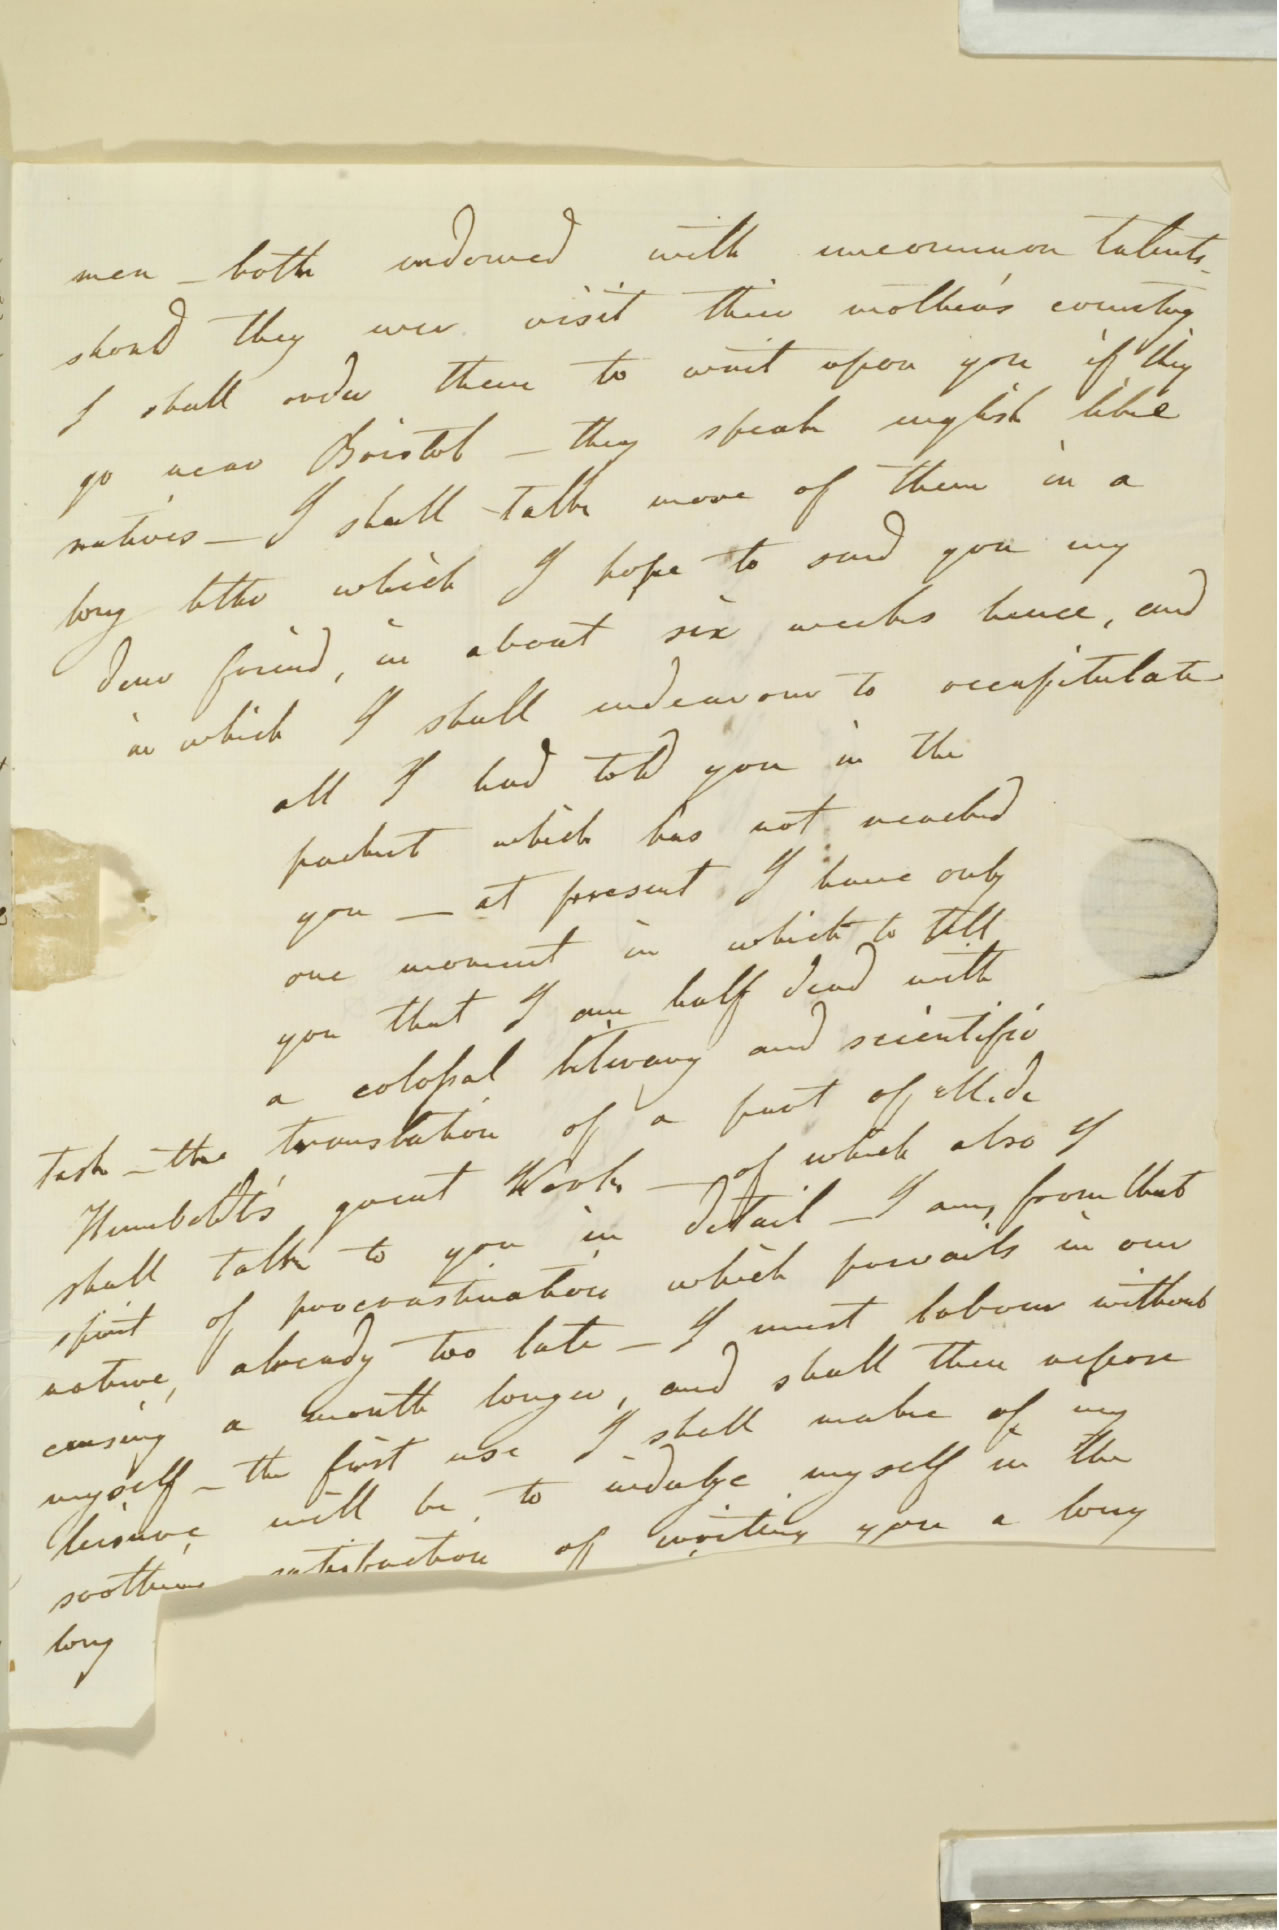 men – both endowed with uncommon talents –
should they ever visit their mother's country
I shall order them to wait upon you if they
go near Bristol – they speak english like
natives – I shall talk more of them in a
long letter which I hope to send you my
dear friend, in about six weeks hence, and
in which I shall endeavour to recapitulate
all I had told you in the
packet which has not reached
you – at present I have only
one moment in which to tell
you that I am half dead with
a colossal literary and scientific
task – the translation of a part of M. de
Humboldt's great Work – of which also I
shall talk to you in detail – I am, from that
spirit of procrastination which prevails in our
nature, already too late – I must labour without
ceasing a month longer, and shall then repose
myself – the first use I shall make of my
leisure will be, to indulge myself in the
soothing satisfaction of writing you a long
long